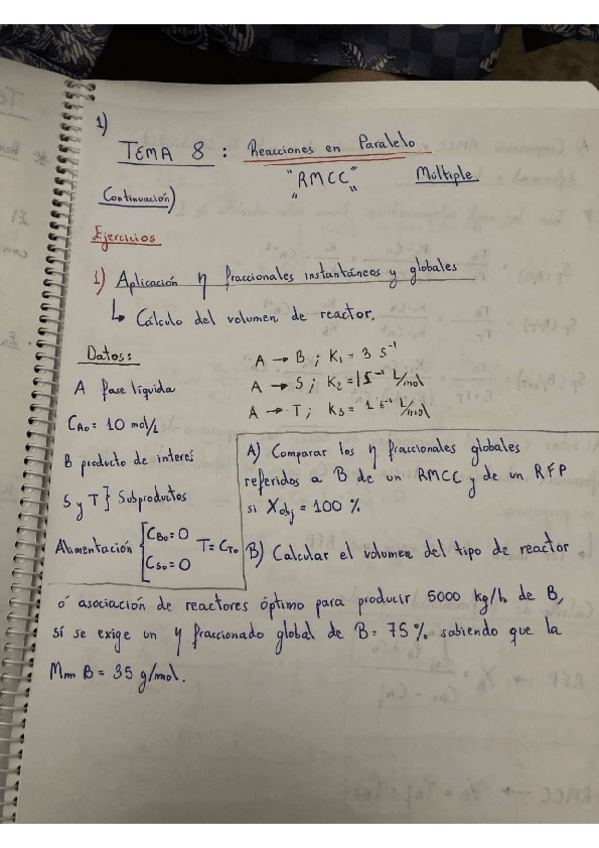 1)
TEMA 8 : Reacciones en Paralelo
"RMCC" Múltiple
Continuación)
Ejercicios
1) Aplicación η fraccionales instantáneos y globales
↳ Cálculo del volumen de reactor.
Datos:
A fase líquida
CA0 = 10 mol/L
B producto de interés
S y T } Subproductos
Alimentación [ CB0 = 0
CS0 = 0
T = CT0
A → B ; K1 = 3 s⁻¹
A → S ; K2 = 1 s⁻¹ L/mol
A → T ; K3 = 1 s⁻¹ L/mol
A) Comparar los η fraccionales globales
referidos a B de un RMCC y de un RFP
si Xobj = 100 %
B) Calcular el volumen del tipo de reactor
ó asociación de reactores óptimo para producir 5000 kg/h de B,
sí se exige un η fraccionado global de B = 75 % sabiendo que la
Mm B = 35 g/mol.